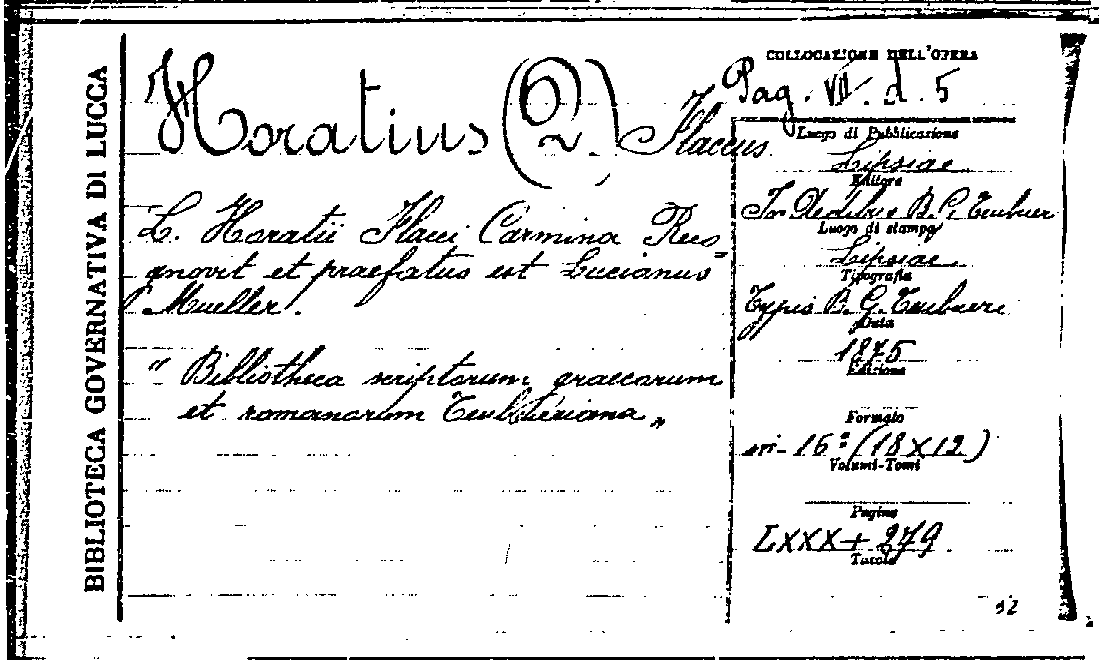 BIBLIOTECA GOVERNATIVA DI LUCCA
Horatius (Q.) Flaccus
L. Horatii Flacci Carmina Reco=
gnovit et praefatus est Lucianus
Mueller.
“ Bibliotheca scriptorum graecarum
et romanarum Teubneriana „
COLLOCAZIONE DELL'OPERA
Pag. VII. d. 5
Luogo di Pubblicazione
Lipsiae
Editore
In Aedibus B. G. Teubner
Luogo di stampa
Lipsiae
Tipografia
Typis B. G. Teubneri
Data
1875
Edizione
Formato
in- 16º (18X12)
Volumi-Tomi
Pagine
LXXX+279
Tavole